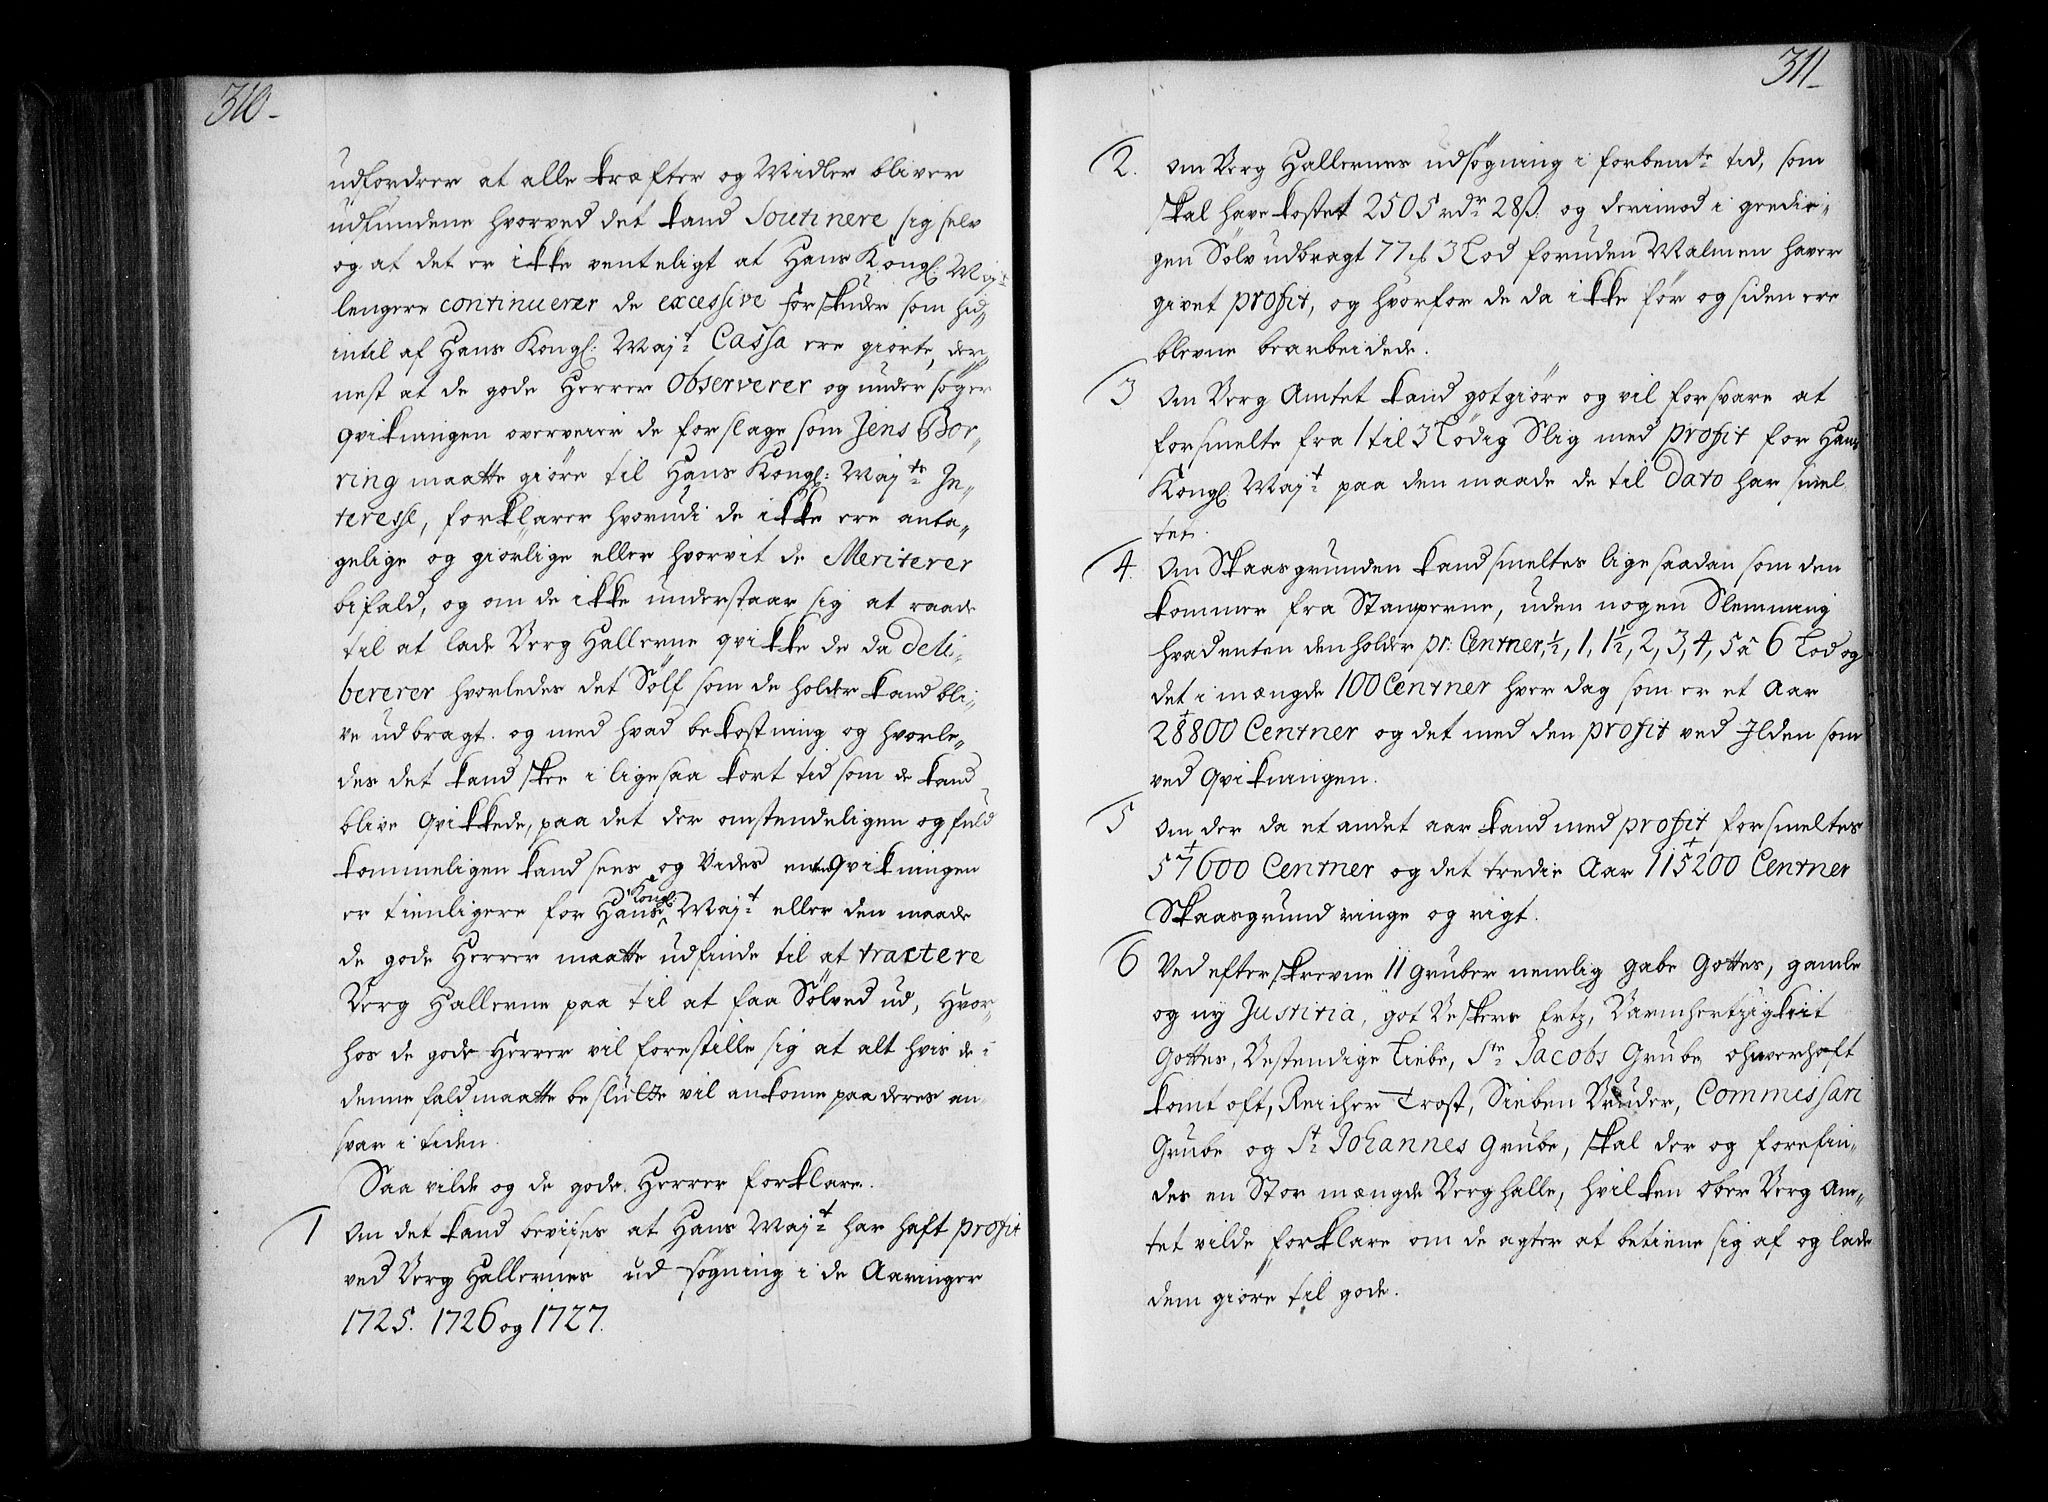 310.
udfordrer at alle kræfter og Midler bliver
udfundene hvorved det kand Soutinere sig selv
og at det er ikke venteligt at Hans Kongl: Majt
lengere continuerer de excessive forskuder som hid„
intil af Hans Kongl: Majt Cassa ere giorte, der„
nest at de gode Herrer Observerer og undersøger
qvikningen overveier de forslage som Jens Bor„
ring maatte giøre til Hans Kongl: Majts In„
teresse, forklarer hvorudi de ikke ere anta„
gelige og giørlige eller hvorvit de Meriterer
bifald, og om de ikke understaar sig at raade
til at lade Berg Hallerne qvikke de da deli„
bererer hvorledes det Sølf som de holder kand bli„
ve udbragt. og med hvad bekostning og hvorle„
des det kand skee i ligesaa kort tid som de kand
blive Qvikkede, paa det der omstendeligen og fuld
kommeligen kand sees og Vides enten qvikningen
er tienligere for Hans Kongl: Majt eller den maade
de gode Herrer maatte udfinde til at tractere
Berg Hallerne paa til at faa Sølved ud, Hvor„
hos de gode Herrer vil forestille sig at alt hvis de i
denne fald maatte beslutte vil ankome paa deres an„
svar i tiden.
Saa vilde og de gode Herrer forklare.
1 Om det kand bevises at Hans Majt har haft profit
ved Berg Hallernes udsøgning i de Aaringer
1725. 1726 og 1727.
311
2. Om Berg Hallernes udsøgning i forbemte tid, som
skal have kostet 2505 rdr 28ß. og derimod i gredie„
gen Sølv udbragt 77 ℔ 3 Lod foruden Malmen haver
givet profit, og hvorfor de da ikke før og siden ere
blevne bearbeidede.
3 Om Berg Amtet kand gotgiøre og vil forsvare at
forsmelte fra 1 til 3 Lødig Slig med profit for Hans
Kongl: Majt paa den maade de til Dato har smel
tet.
4. Om Skaasgrunden kand smeltes lige saadan som den
kommer fra Stamperne, uden nogen Slemming
hvad enten den holder pr: Centner, ½, 1, 1½, 2, 3, 4, 5 â 6 Lod og
det i mængde 100 Centner hver dag som er et Aar
28800 Centner og det med den profit ved Ilden som
ved Qvikningen.
5 Om der da et andet aar kand med profit forsmeltes
57600 Centner og det tredie Aar 115200 Centner
Skaasgrund ringe og rigt.
6 Ved efterskrevne 11 Gruber nemlig Gabe Gottes, gamle
og ny Justitia, got Beskers Ertz, Barmhertzigkeit
Gottes, Bestendige Liebe, Ste Jacobs Grube, ohnverhoft
komt oft, Reicher Trost, Sieben Bruder, Commissari
Grube og St Johannes Grube, skal der og forefin„
des en Stor mængde Berghalle, hvilken Ober Berg Am„
tet vilde forklare om de agter at betiene sig af og lade
dem giøre til gode.